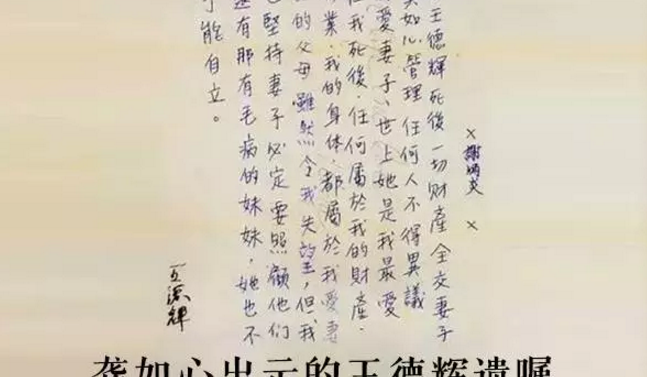 謝炳炎
王德輝死後一切財產全交妻子
如心管理 任何人不得異議
愛妻子、世上她是我最愛
我死後.任何屬於我的財產.
業.我的身体.都屬於我愛妻
的父母雖然令我失望,但我
堅持妻子必定要照顧他們
還有那有毛病的妹妹,她也不
能自立。
王德輝
龚如心出示的王德辉遗嘱